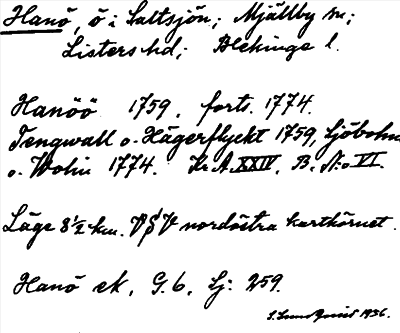 Hanö, ö i Saltsjön; Mjällby sn;
Listers hd; Blekinge l.
Hanöö 1759, forts. 1774.
Tengwall o. Hägerflyckt 1759, Sjöbohm
o. Wolin 1774. Kr. A. XXIV. B. N:o VI.
Läge 8½ km. V§V nordöstra karthörnet.
Hanö ek. G. 6, Lj: 259.
1936.